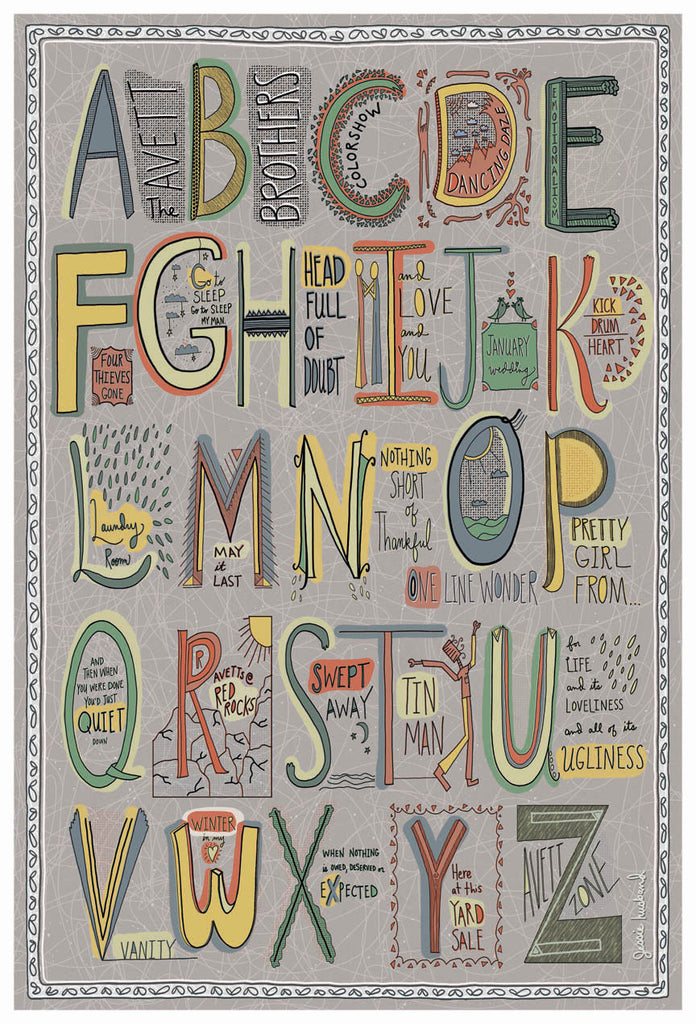 A The AVETT B BROTHERS C COLORSHOW D DANCING DAZE E EMOTIONALISM
F FOUR
THIEVES
GONE
G Go to
SLEEP
Go to SLEEP
MY MAN.
H HEAD
FULL
OF
DOUBT
I and
LOVE
and
YOU
J JANUARY
wedding
K KICK
DRUM
HEART
L Laundry
Room
M MAY
it
LAST
N NOTHING
SHORT
of
Thankful
O ONE LINE WONDER
P PRETTY
GIRL
FROM...
Q AND
THEN WHEN
YOU WERE DONE
YOU'D JUST
QUIET
DOWN
R R AVETTS@
RED
ROCKS
S SWEPT
AWAY
T TIN
MAN
U for
LIFE
and its
LOVELINESS
and all of its
UGLINESS
V VANITY
W WINTER
in my
X WHEN NOTHING
is OWED, DESERVED or
EXPECTED
Y Here
at this
YARD
SALE
Z AVETT ZONE
Jessie Husband